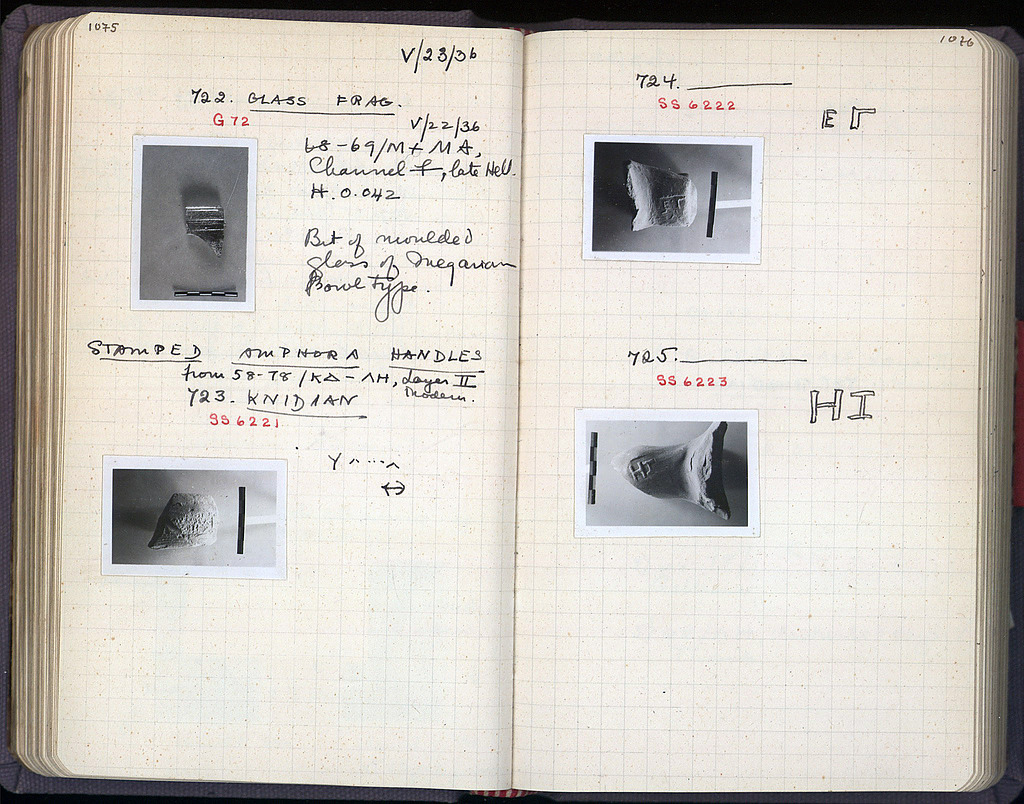 1075
V/23/36
722. GLASS FRAG.
G 72
V/22/36
68-69/ΜΣ-ΜΑ,
Channel, late Hell.
H. 0.042
Bit of moulded
glass of Megarian
Bowl type.
STAMPED AMPHORA HANDLES
from 58-78/ΚΔ-ΛΗ, Layer II
modern.
723. KNIDIAN
SS 6221
1076
724.
SS 6222
Ε Γ
725.
SS 6223
HI